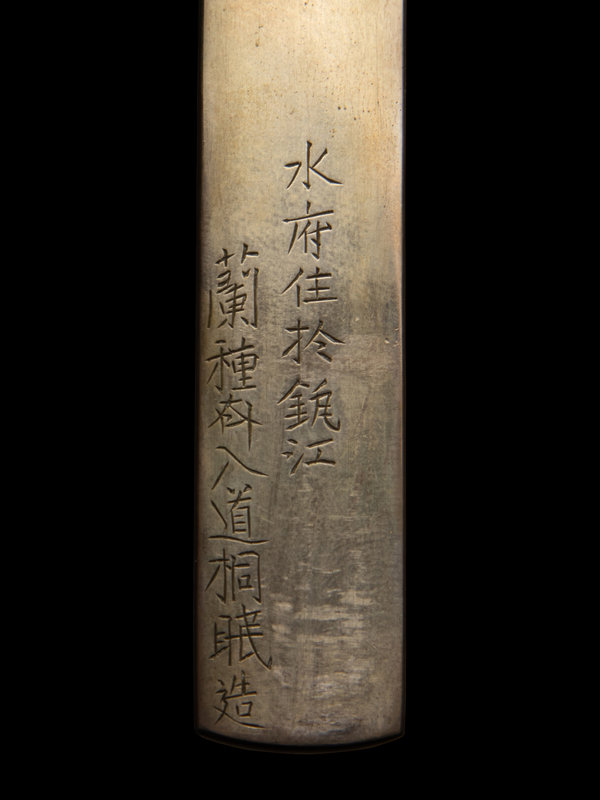 水府住於鉾江
蘭種斎入道桐眠造